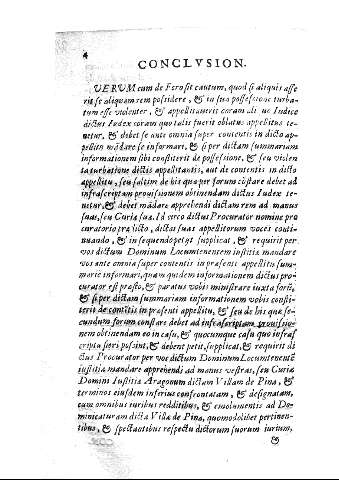 4
CONCLVSION.
VERVM cum de Foro sit cautum, quod si aliquis asse
rit se aliquam rem possidere, & in sua possessione turba-
tum esse violenter, & appellauerit coram aliquo Iudice
dictus Iudex coram quo talis fuerit oblatus appellitus te-
netur, & debet se ante omnia super contentis in dicto ap-
pellitu mādare se informari, & si per dictam summariam
informationem sibi constiterit de possessione, & seu violen
ta turbatione dictis appellitantis, aut de contentis in dicto
appellitu, seu saltim de his que per forum cōstare debet ad
infrascriptam prouisionem obtinendam dictus Iudex te-
netur, & debet mādare apprehendi dictam rem ad manus
suas, seu Curia sua. Id circo dictus Procurator nomine pro
curatorio prædicto, dictas suas appellitorum voces conti-
nuando, & in sequendo petyt supplicat, & requirit per
vos dictum Dominum Locumtenentem iustitia mandare
vos ante omnia super contentis in præsenti appellitu sum-
marie informari, quam quidem informationem dictus pro-
curator est præsto, & paratus vobis ministrare iuxta forū,
& si per dictam summariam informationem vobis consti-
terit de contētis in præsenti appellitu, & seu de his que se-
cundum forum constare debet ad infrascriptam prouisio-
nem obtinendam eo in casu, & quocumque casu quo infras
criptu fieri possint, & debent petit, supplicat, & requirit di
ctus Procurator per vos dictum Dominum Locumtenentē
iustitia mandare apprehendi ad manus vestras, seu Curia
Domini Iustitia Aragonum dictam Villam de Pina, &
terminos eiusdem inferius confrontatam, & designatam,
cum omnibus iuribus redditibus, & emolumentis ad Do-
minicaturam dicta Villa de Pina, quomodolibet pertinen-
tibus, & spectantibus respectu dictorum suorum iurium,
&